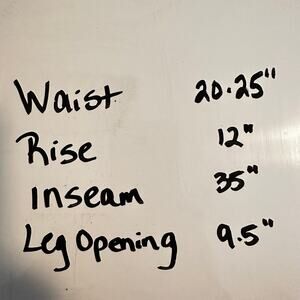 Waist 20.25"
Rise 12"
Inseam 35"
Leg Opening 9.5"